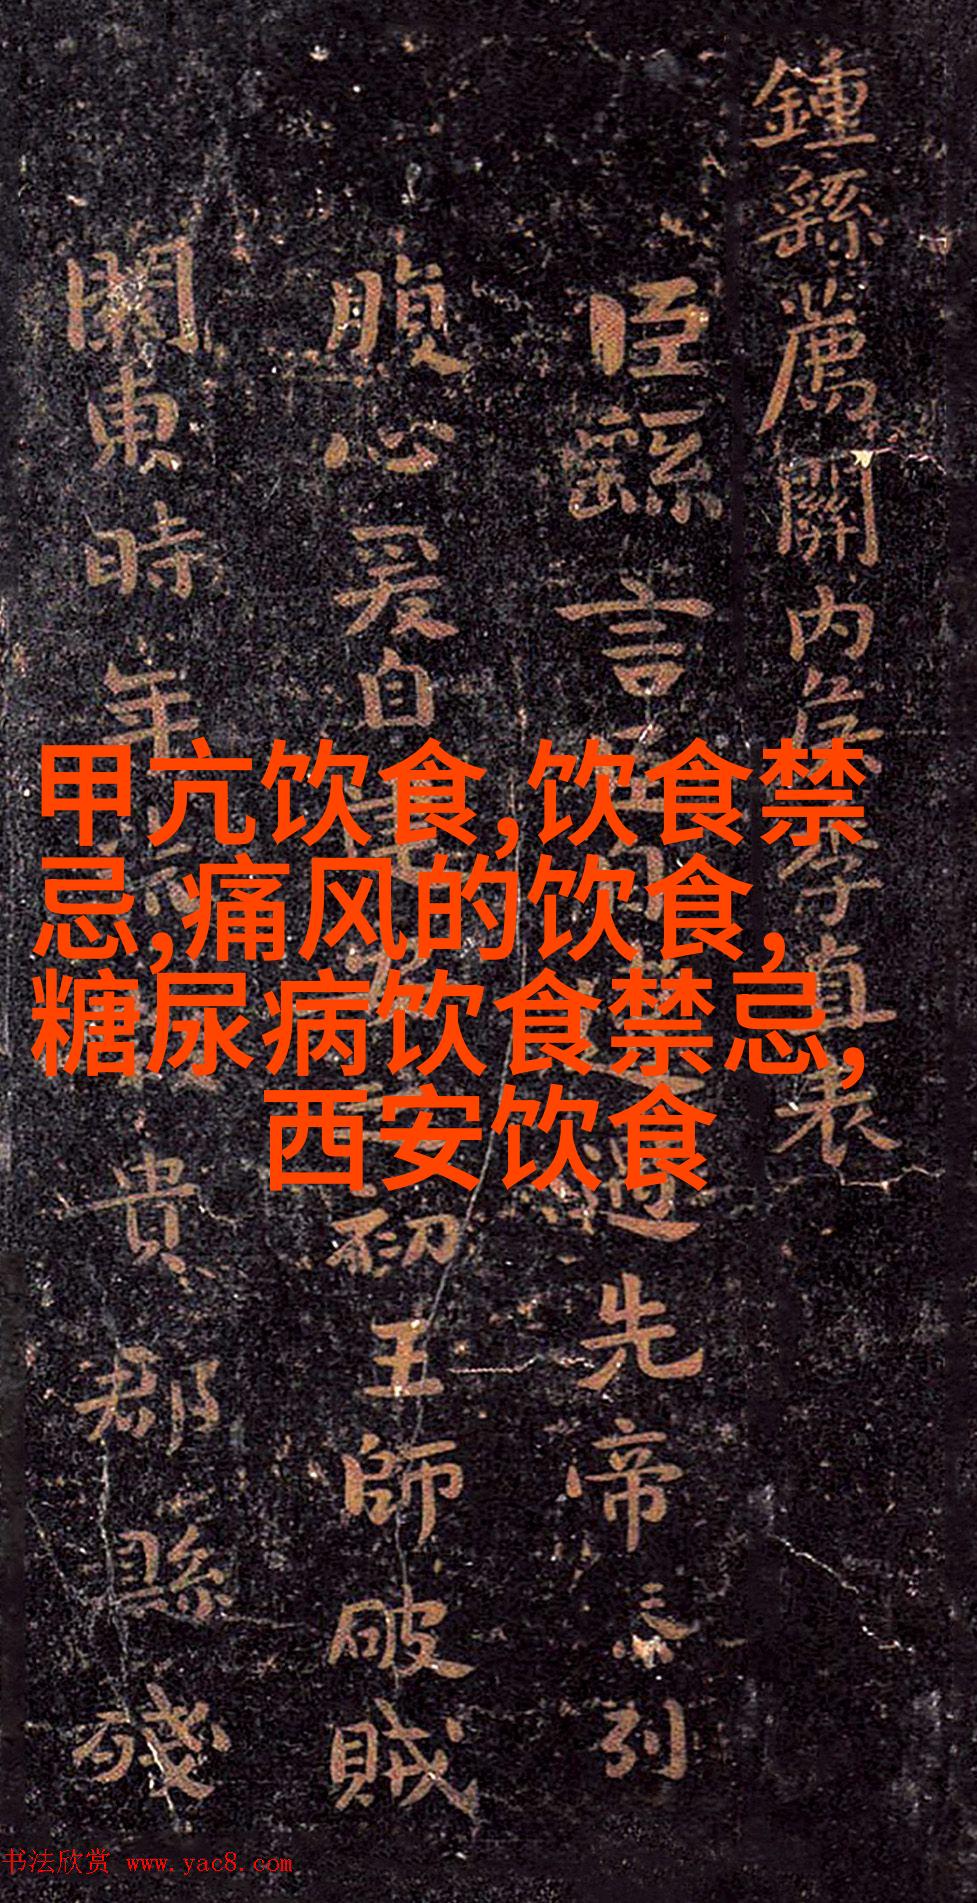 鍾繇薦關内侯季直表
臣繇言臣自遭遇先帝忝列
腹心爰自建安之初王師破賊
關東時年荒穀貴郡縣殘
甲亢饮食,饮食禁
忌,痛风的饮食,
糖尿病饮食禁忌,
西安饮食
书法欣赏 www.yac8.com